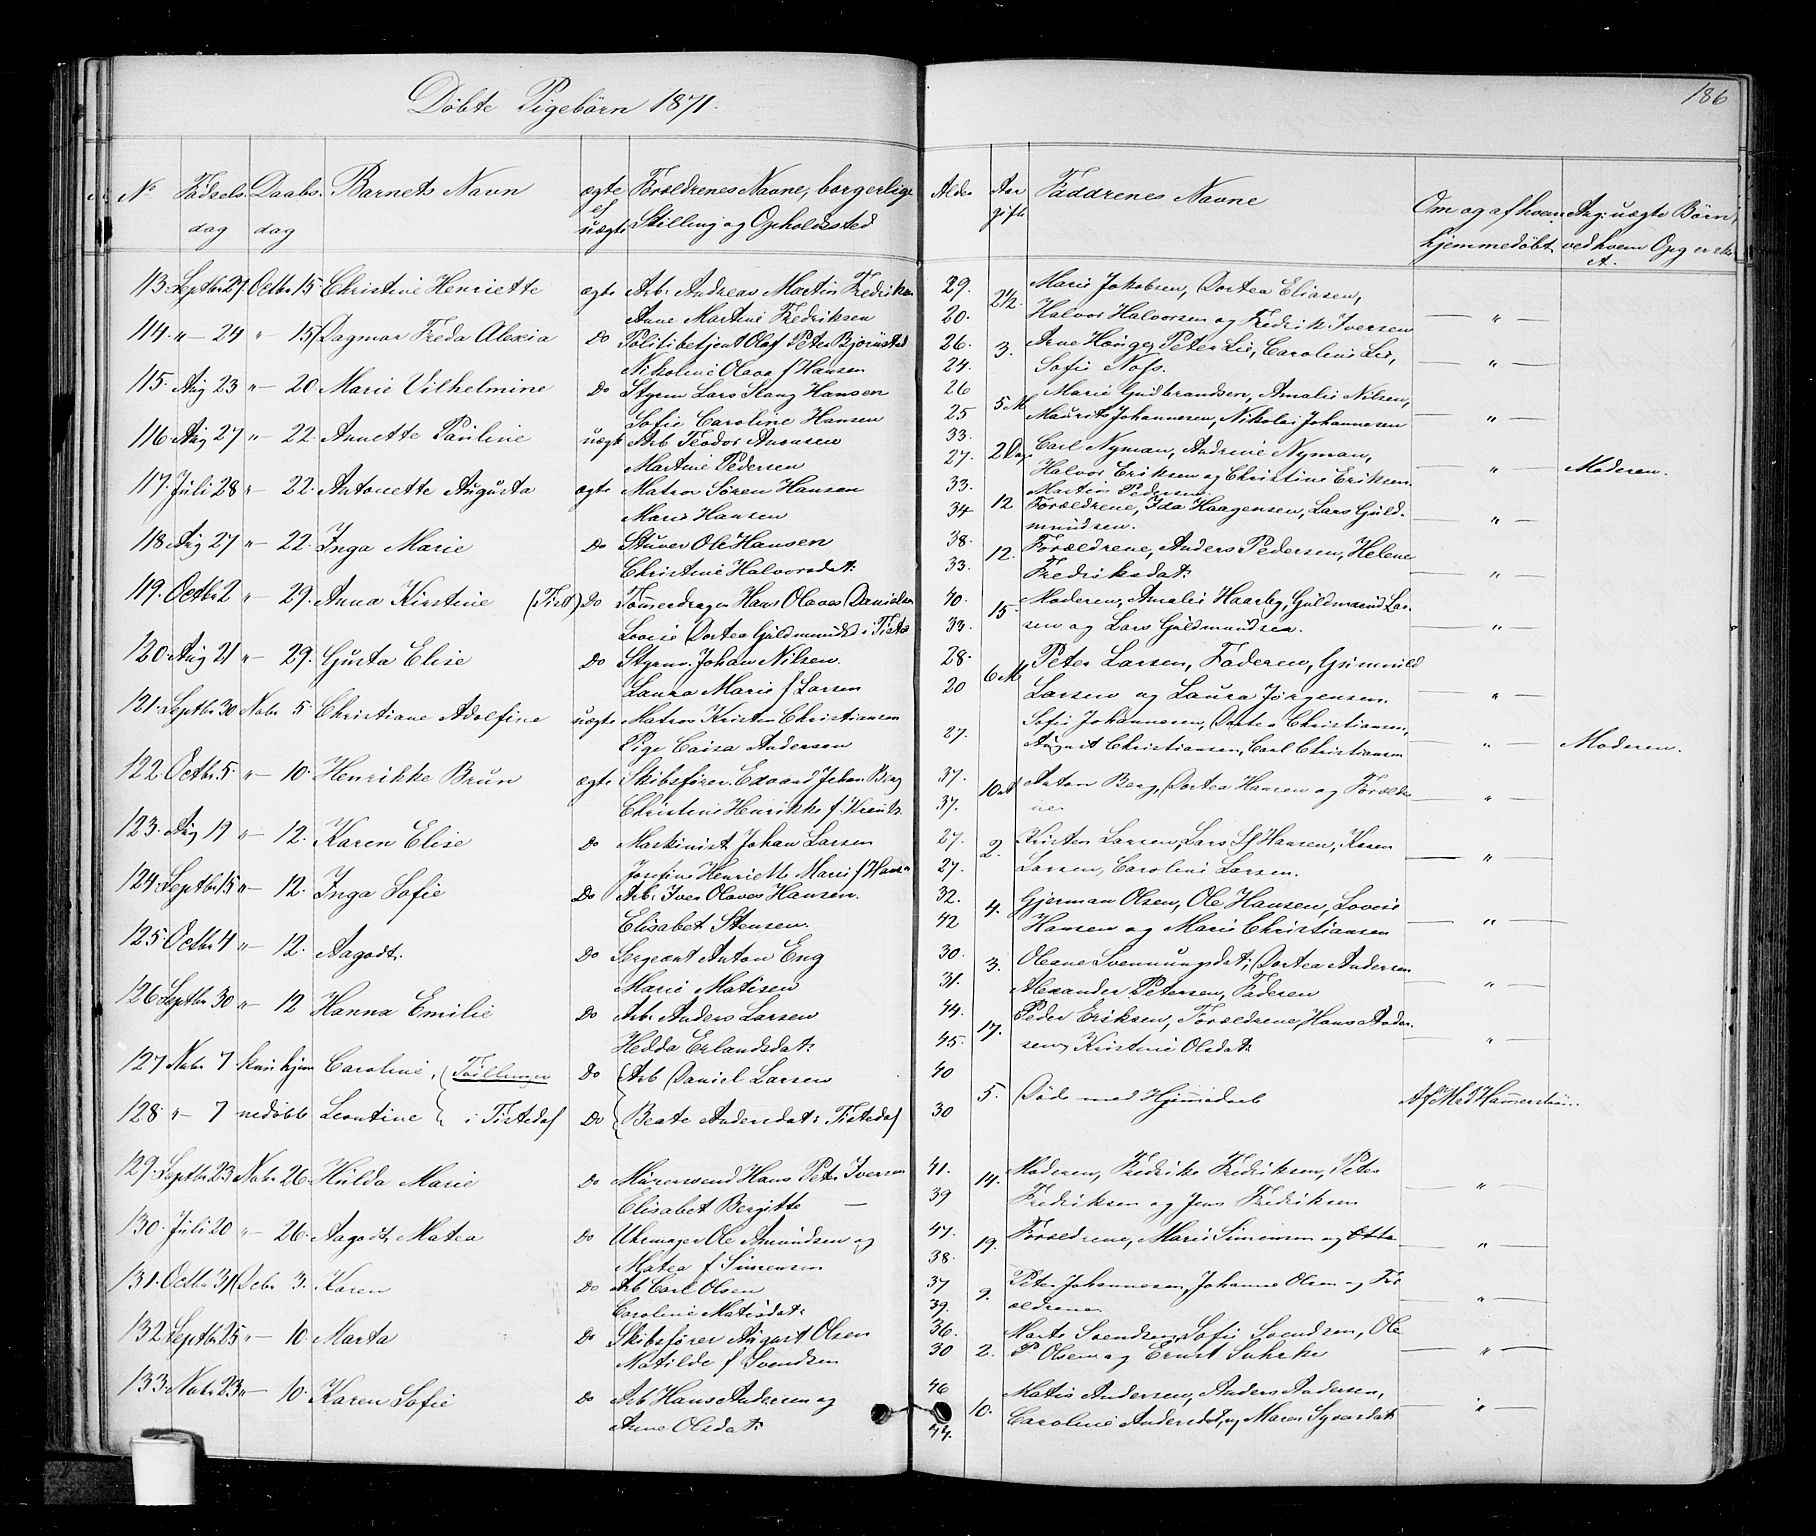 Döbte Pigebörn 1871.
186
No Födsels dag Daabs dag Barnets Navn ægte el uægte Forældrenes Navne, borgerlige Stilling og Opholdssted
Alder Faddrenes Navne Om og af hvem hjemmedöbt Ang: uægte Börn, ved hvem Opg er sk
113. Septbr 27. Octbr 15. Christine Henriette ægte Arb. Andreas Martin Fredriksen 29. 2 1/2. Marie Jakobsen, Dortea Eliasen,
Anne Martine Fredriksen 20. Halvor Halvorsen og Fredrik Iversen — " —
114. " — 24 " — 15 Dagmar Freda Alexia Do Politibetjent Olaf Peter Björnstad 26. 3. Arne Hauge, Peter Lie, Caroline Lie,
Nikoline Olava f Hansen 24. Sofie Nafs. — " —
115. Aug 23 " — 20 Marie Vilhelmine Do Styrm Lars Stang Hansen 26 5 M Marie Gudbrandsen, Amalie Nilsen,
Sofie Caroline Hansen 25 Maurits Johannesen, Nikolai Johannesen — " —
116 Aug 27 " — 22. Annette Pauline uægte Arb Teodor Aronsen 33. 2 Carl Nyman, Andrine Nyman,
Martine Pedersen 27. Halvor Eriksen og Christine Eriksen. — " — Moderen.
Martin Pedersen.
117. Juli 28 " — 22. Antonette Augusta ægte Matros Sören Hansen 33. 12 Forældrene, Ida Haagensen, Lars Guld-
Marie Hansen 34 mundsen. — " —
118 Aug 27 " — 22. Inga Marie Do Stuver Ole Hansen 38. 12. Forældrene, Anders Pedersen, Helene
Christine Halvorsdat: 33. Fredriksdat: — " —
119. Octbr 2 " — 29. Anna Kirstine (Tist) Do Tömmerdrager Hans Olaves Danielsen 40. 15 Moderen, Amalie Haarby, Guldmund Lar-
Lovise Dortea Guldmunds i Tista 33. sen og Lars Guldmundsen. — " —
120 Aug 21 " — 29. Gusta Elise Do Styrm. Johan Nilsen. 28. 6 M Peter Larsen, Faderen, Gunnild
Laura Marie f Larsen 20 Larsen og Laura Jörgensen. " —
121. Septbr 30 Nobr 5. Christiane Adolfine uægte Matros Kristen Christiansen 27. Sofie Johannesen, Dortea Christiansen,
Pige Caisa Andersen August Christiansen, Carl Christiansen — " — Moderen.
122. Octbr 5. " — 10. Henrikke Brun ægte Skibsförer Edvard Johan Berg 37. 10 Anton Berg, Dortea Hansen og Foræld-
Christine Henrikke f. 37. rene — " —
123. Aug 19 " — 12. Karen Elise Do Maskinist Johan Larsen 27. 2. Kristen Larsen, Lars Hansen, Karen
Josefine Henriette Marie f Hansen 27. Larsen, Caroline Larsen. — " —
124. Septbr 15 " — 12. Inga Sofie Do Arb. Iver Olaves Hansen. 32. 4. Gjerman Olsen, Ole Hansen, Lovise
Elisabet Stensen. 42 Hansen og Marie Christiansen — " —
125. Octbr 4 " — 12. Aagodt. Do Sergeant Anton Eng 30. 3. Oleane Svennungsdat:, Dortea Andersen
Marie Matisen 31. Alexander Petersen, Faderen — " —
126. Septbr 30 " — 12 Hanna Emilie Do Arb. Anders Larsen 44. 17. Peder Eriksen, Forældrene, Hans Ander-
Hedda Erlandsdat: 45. sen, Kristine Olsdat: — " —
127 Nobr 7 kun hjem Caroline, Tvillinger Do Arb Daniel Larsen 40 5. Döde med Hjemmedaab Af Mad Hammerström
128. " — 7 medöbt Leontine i Tistedal Do Beate Andersdat: Tistedal 30
129. Septbr 23 Nobr 26. Hulda Marie Do Murersvend Hans Peter Iversen 41. 14. Moderen, Fredrike Fredriksen, Peter
Elisabet Bergitte — 39 Fredriksen og Jens Fredriksen — " —
130. Juli 20 " — 26. Aagodt Matea Do Uhrmager Ole Amundsen og 47. 19. Forældrene, Marie Simensen og Otto
Matea f Simensen 38. — " —
131. Octbr 31 Decbr 3. Karen Do Arb Carl Olsen 37 9. Peter Johannesen, Johanne Olsen og For-
Caroline Matisdat: 39. ældrene — " —
132. Septbr 25 " — 10 Marta Do Skibsförer August Olsen 36. 2. Marte Svendsen, Sofie Svendsen, Ole
Matilde f Svendsen 30 P Olsen og Ernst Suhrke — " —
133. Nobr 23 " — 10. Karen Sofie Do Arb Hans Andersen og 46 10. Matis Andersen, Anders Andersen,
Anne Olsdat: 44. Caroline Andersdat, og Maren Syversdat: "